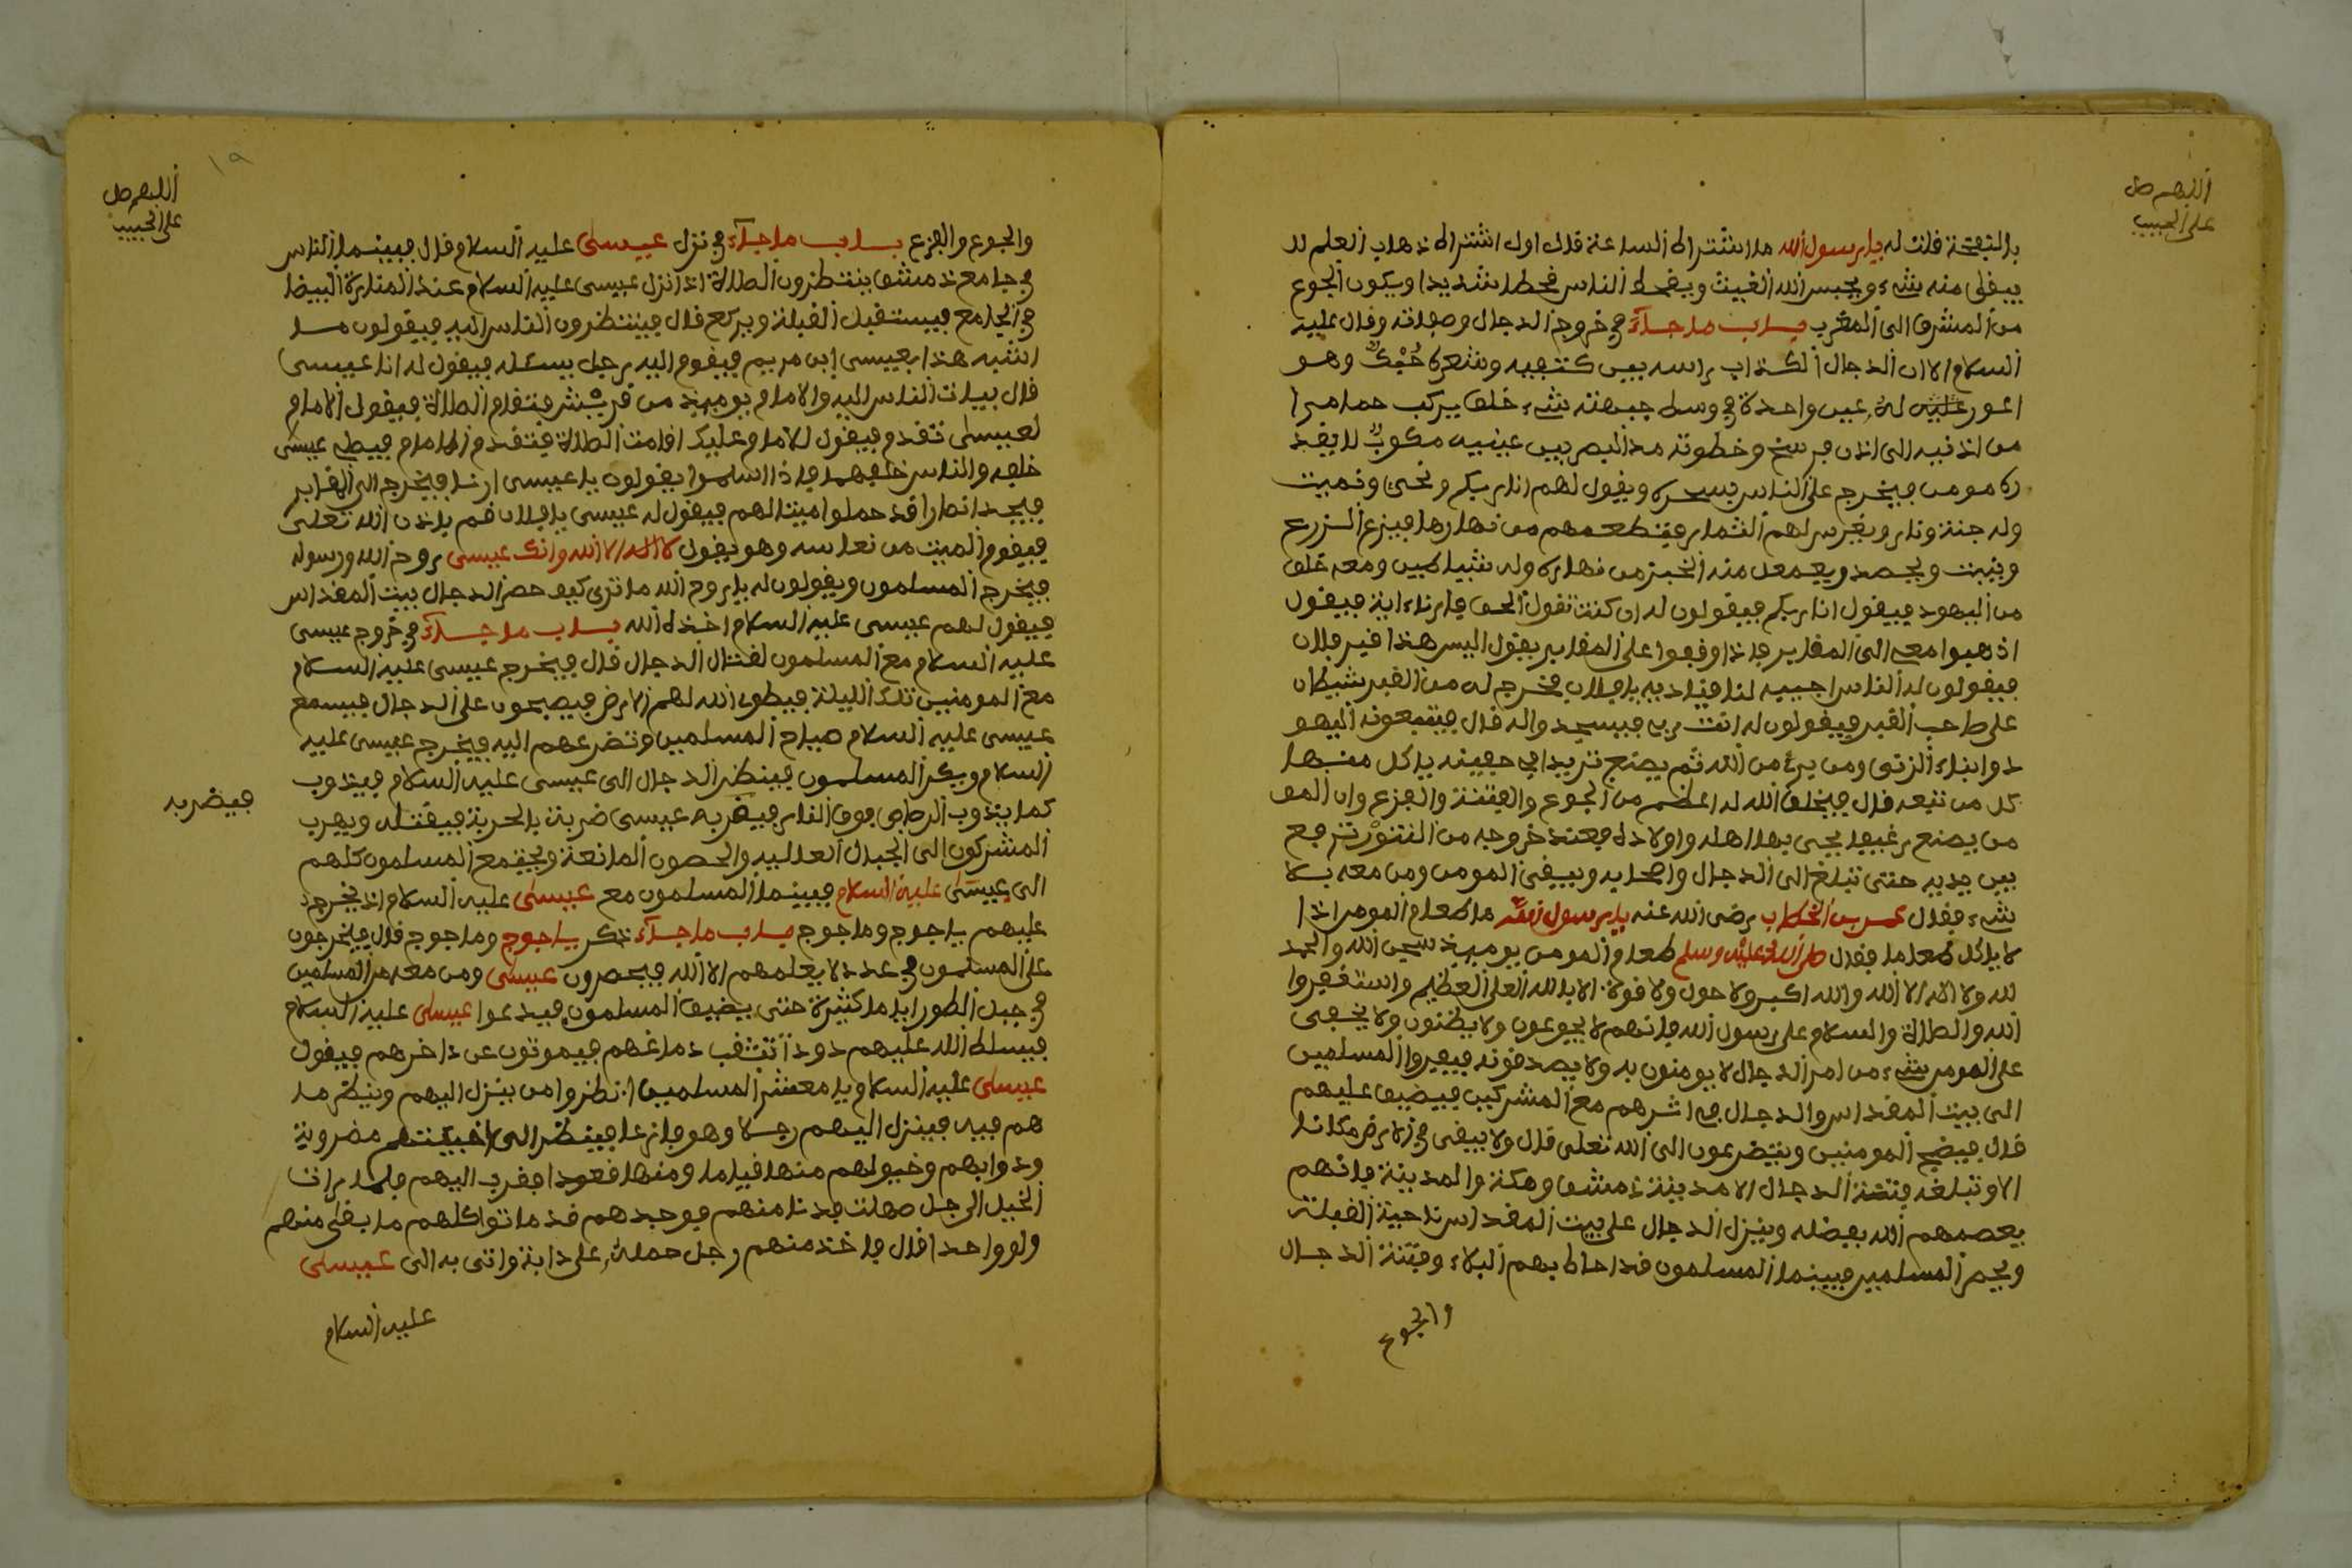 اللهم صل
على الحبيب
بالنفخة فلت له يا رسول الله ما اشتراط الساعة قال اول اشتراط ذهاب العلم لا
يبقى منه شيء ويحبس الله الغيث ويقحط الناس قحطا شديدا ويكون الجوع
من المشرق الى المغرب باب ما جآء في خروج الدجال وصفاته وقال عليه
السلام الا ان الدجال الكذاب راسه بين كتفيه وشعره حبك وهو
اعور عليه له عين واحدة في وسط جبهته شيء خلق يركب حمارا
من اذنيه الى اذن فرسخ وخطوته مد البصر بين عينيه مكتوب لا يقد
ره مومن فيخرج على الناس بسحره ويقول لهم انا ربكم ونحي ونميت
وله جنة ونار ويغرس لهم الثمار فتطعمهم من نهارها فيزع الزرع
وينبت ويحصد ويعمل منه الخبز من نهاره وله شياطين ومعه خلق
من اليهود فيقول انا ربكم فيقولون له ان كنت تقول الحق فارنا اية فيقول
اذهبوا معي الى المقابر فاذا وقفوا على المقابر يقول اليس هذا قبر فلان
فيقولون له الناس اجيبه لنا فينادبه يا فلان فيخرج له من القبر شيطان
على صاحب القبر فيقولون له انت ربي فيسجدوا له قال فيتبعونه اليهو
دوابناء الزنى ومن برئ من الله ثم يصنع ثريدا في جفينه ياكل منها
كل من تبعه قال فيخلق الله له اعظم من الجوع والفتنة والفزع وان المو
من يصنع رغيفا يحي بها اهله واولاده فعند خروجه من التنور ترفع
بين يديه حتى تبلغ الى الدجال واصحابه ويبقى المومن ومن معه بلا
شيء فقال عمر بن الخطاب رضى الله عنه يا رسول الله ما طعام المومن اذا
لا ياكل طعاما فقال صلى الله عليه وسلم طعام المومن يوميذ سبحن الله والحمد
لله ولا اله الا الله والله اكبر ولا حول ولا قوة الا بالله العلي العظيم واستغفروا
الله والصلاة والسلام على رسول الله فانهم لا يجوعون ولا يظنون ولا يخفى
على المومن شيء من امر الدجال لا يومنون به ولا يصدقونه فيفروا المسلمين
الى بيت المقداس والدجال في اثرهم مع المشركين فيضيق عليهم
قال فيضج المومنين ويتضرعون الى الله تعلى قال ولا يبقى في الارض مكانا
الا وتبلغه فتنة الدجال الا مدينة دمشق ومكة والمدينة فانهم
يعصمهم الله بفضله وينزل الدجال على بيت المقداس ناحية القبلة
ويحصر المسلمين فبينما المسلمون قد احاط بهم البلاء وفتنة الدجال
والجوع
١٩
اللهم صل
على الحبيب
والجوع والفزع باب ما جآء في نزل عيسى عليه السلام قال فبينما الناس
في جامع دمشق ينتظرون الصلاة اذ انزل عيسى عليه السلام عند المنارة البيضا
في الجامع فيستقبل القبلة ويركع قال فينتظرون الناس اليه فيقولون ما
اشبه هذا بعيسى ابن مريم فيقوم اليه رجل يسئله فيقول له انا عيسى
قال بيات الناس اليه والامام يوميذ من قريش فتقام الصلاة فيقول الامام
لعيسى تقدم فيقول للامام عليك اقامت الصلاة فتقدم الامام فيصلي عيسى
خلفه والناس خلفهما فاذا اسلموا يقولون يا عيسى ارنا فيخرج الى المقابر
فيجد انصارا قد حملوا ميتا لهم فيقول له عيسى يا فلان قم باذن الله تعلى
فيقوم الميت من نعاسه وهو يقول لا اله الا الله وانك عيسى روح الله ورسوله
فيخرج المسلمون ويقولون له يا روح الله ما ترى كيف حصر الدجال بيت المقداس
فيقول لهم عيسى عليه السلام اخذه الله باب ما جآء في خروج عيسى
عليه السلام مع المسلمون لقتال الدجال قال فيخرج عيسى عليه السلام
مع المومنين تلك الليلة فيطوي الله لهم الارض فيصبحون على الدجال فيسمع
عيسى عليه السلام صياح المسلمين وتضرعهم اليه فيخرج عيسى عليه
السلام ويكبر المسلمون فينظر الدجال الى عيسى عليه السلام فيذوب
كما يذوب الرصاص فوق النار فيضربه عيسى ضربة بالحربة فيقتله ويهرب
فيضربه
المشركون الى الجبال العالية والحصون المانعة ويجتمع المسلمون كلهم
الى عيسى عليه السلام فبينما المسلمون مع عيسى عليه السلام اذ يخرج
عليهم ياجوج وماجوج باب ما جآء ذكر ياجوج وماجوج قال فيخرجون
على المسلمون في عدد لا يعلمهم الا الله فيحصرون عيسى ومن معه من المسلمين
في جبل الطور اياما كثيرة حتى يضيق المسلمون فيدعوا عيسى عليه السلام
فيسلط الله عليهم دودا تنشقب دماغهم فيموتون عن داخرهم فيقول
عيسى عليه السلام يا معشر المسلمين انظروا من ينزل اليهم وينظر ما
هم فيه فينزل اليهم رجلا وهو فازعا فينظر الى اخبيتهم مضروبة
ودوابهم وخيولهم منها قياما ومنها قعودا فقرب اليهم فلما رات
الخيل الرجل صهلت فدنا منهم فوجدهم قد ماتوا كلهم ما بقى منهم
ولو واحدا قال فاخذ منهم رجل حمله على دابة واتى به الى عيسى
عليه السلام